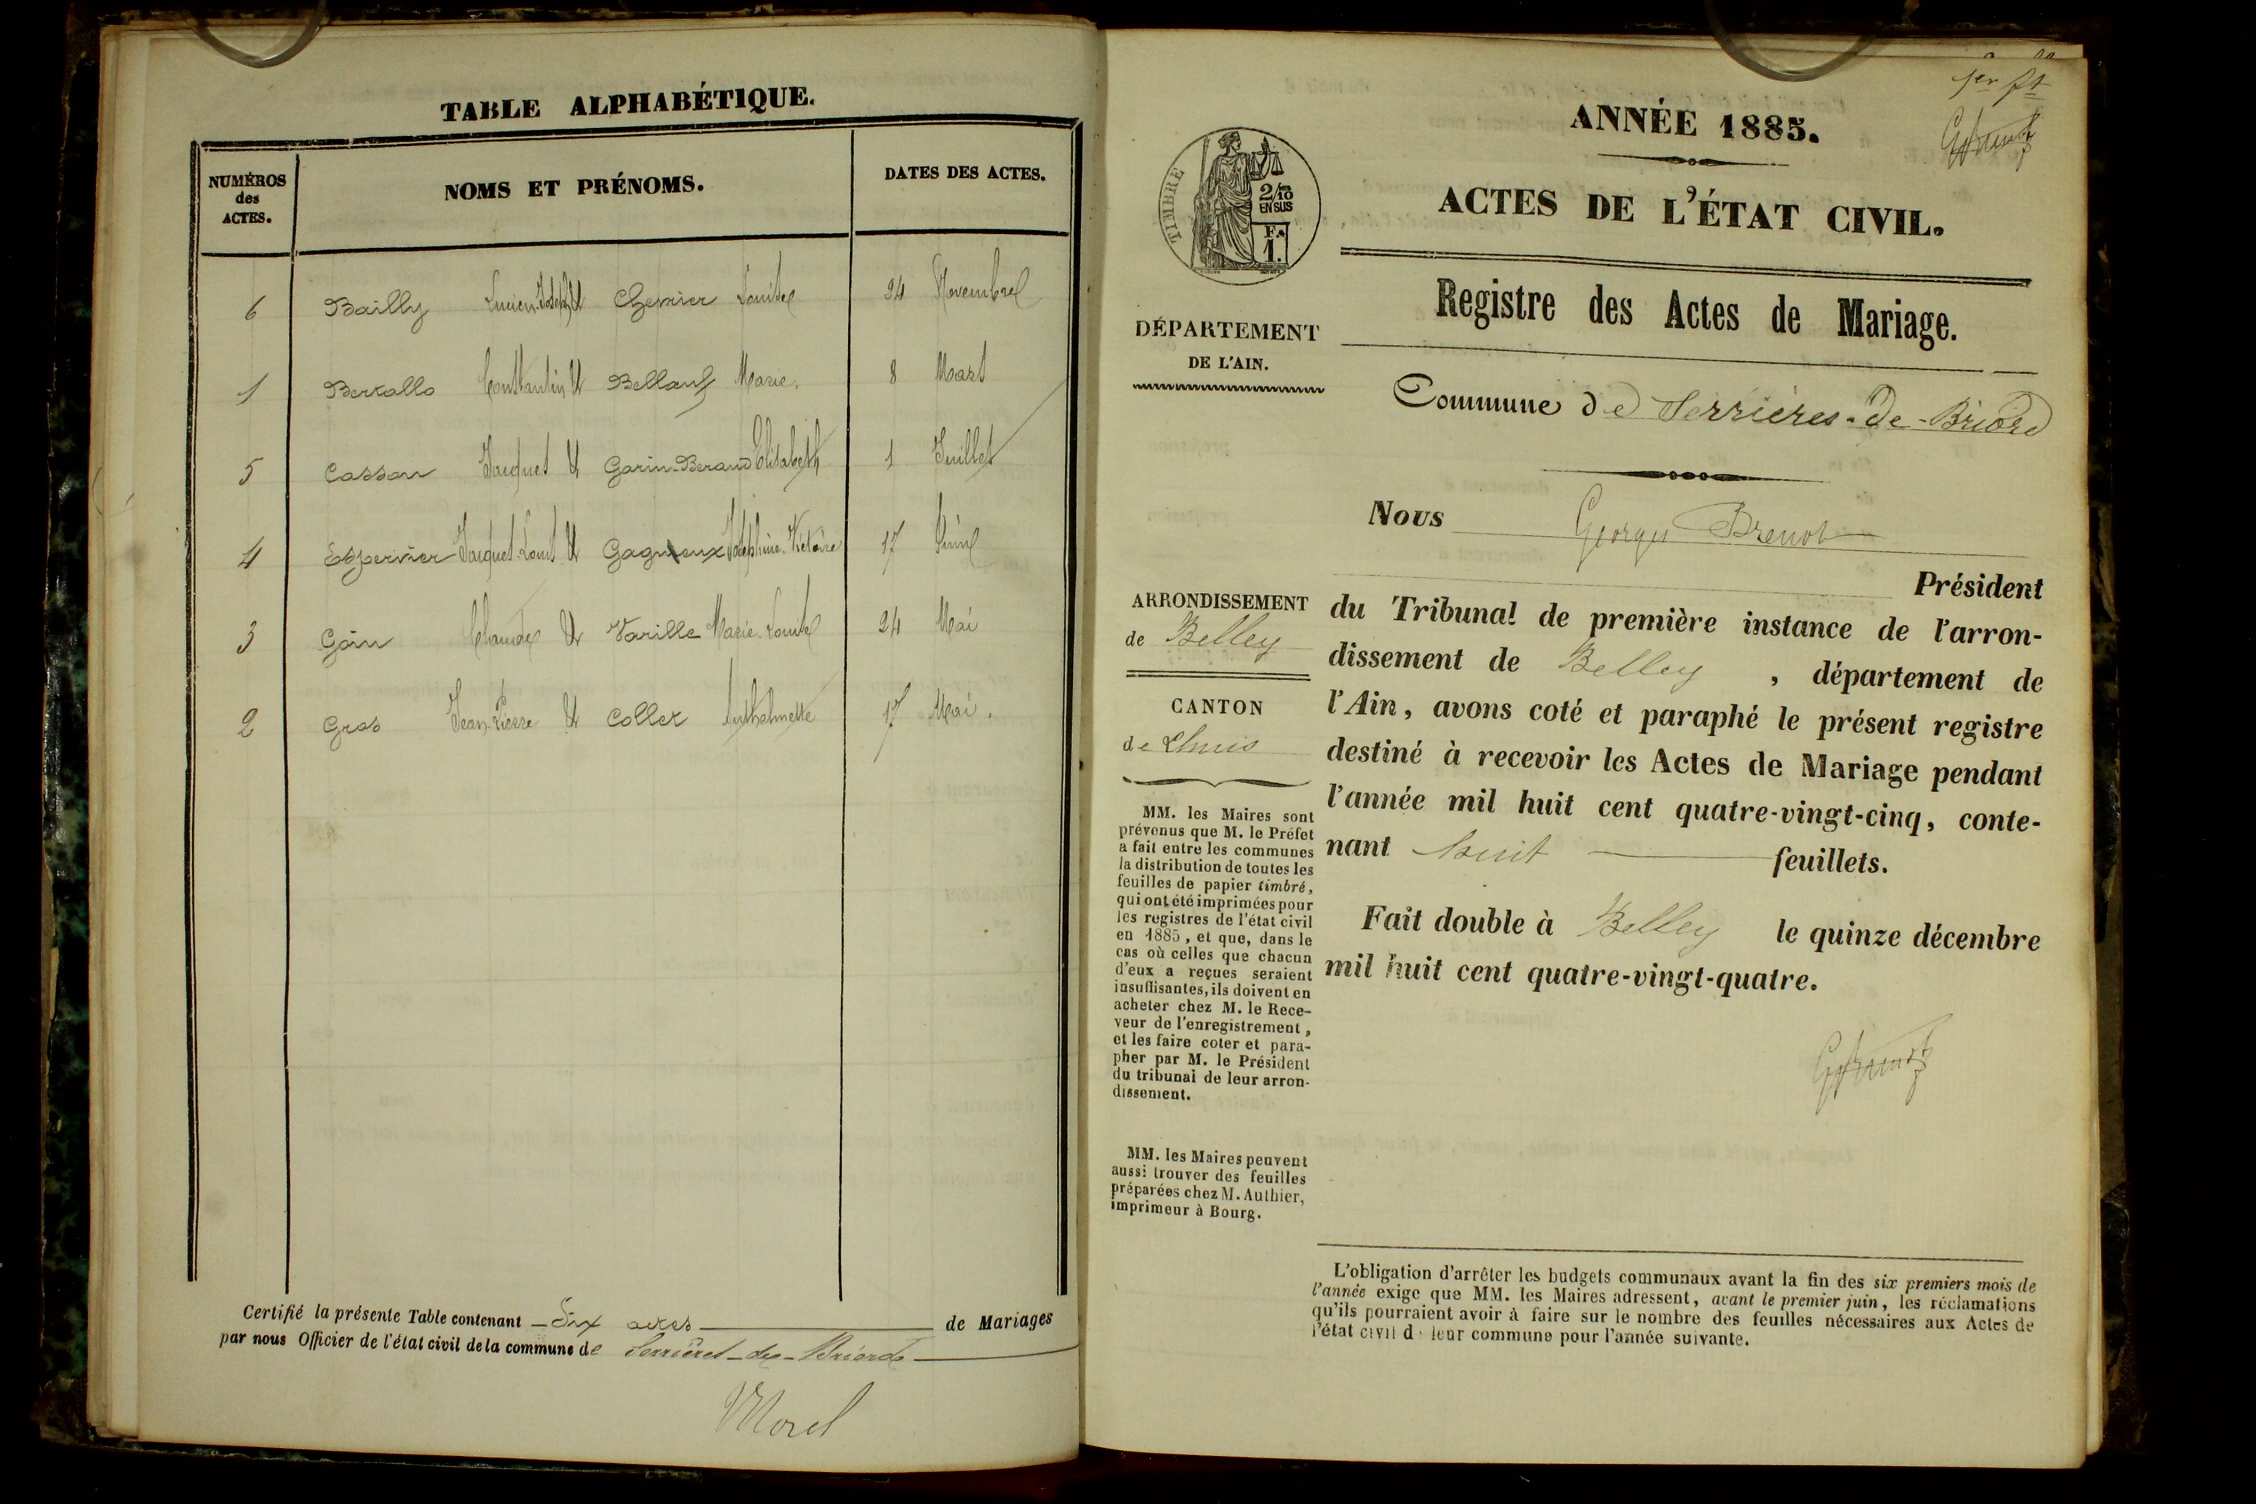 TABLE ALPHABÉTIQUE.
NUMÉROS
des
ACTES.
NOMS ET PRÉNOMS.
DATES DES ACTES.
6 Bailly Lucien Joseph & Chernier Louise 24 Novembre
1 Bertallo Constantin & Bellanf Marie. 8 Mars
5 Casson Jacques & Garin-Beraud Elisabeth 1 Juillet
4 Espervier Jacques-Louis & Gagnieux Joséphine-Victoire 17 Juin
3 Goin Claude & Varille Marie-Louise 24 Mai
2 Gros Jean-Pierre & Collet 17 Mai.
Certifié la présente Table contenant Six actes de Mariages
par nous Officier de l'état civil de la commune de Serrières-de-Briord
Morel
1er ft
ANNÉE 1885.
ACTES DE L'ÉTAT CIVIL.
TIMBRE
2/10
EN SUS
F.
1.
Registre des Actes de Mariage.
DÉPARTEMENT
DE L'AIN.
Commune de Serrières-de-Briord
Nous Georges Brenot
Président
du Tribunal de première instance de l'arron-
dissement de Belley, département de
l'Ain, avons coté et paraphé le présent registre
destiné à recevoir les Actes de Mariage pendant
l'année mil huit cent quatre-vingt-cinq, conte-
nant huit feuillets.
Fait double à Belley le quinze décembre
mil huit cent quatre-vingt-quatre.
ARRONDISSEMENT
de Belley
CANTON
de Lhuis
MM. les Maires sont
prévenus que M. le Préfet
a fait entre les communes
la distribution de toutes les
feuilles de papier timbré,
qui ont été imprimées pour
les registres de l'état civil
en 1885, et que, dans le
cas où celles que chacun
d'eux a reçues seraient
insuffisantes, ils doivent en
acheter chez M. le Rece-
veur de l'enregistrement,
et les faire coter et para-
pher par M. le Président
du tribunal de leur arron-
dissement.
MM. les Maires peuvent
aussi trouver des feuilles
préparées chez M. Authier,
imprimeur à Bourg.
L'obligation d'arrêter les budgets communaux avant la fin des six premiers mois de
l'année exige que MM. les Maires adressent, avant le premier juin, les réclamations
qu'ils pourraient avoir à faire sur le nombre des feuilles nécessaires aux Actes de
l'état civil d leur commune pour l'année suivante.